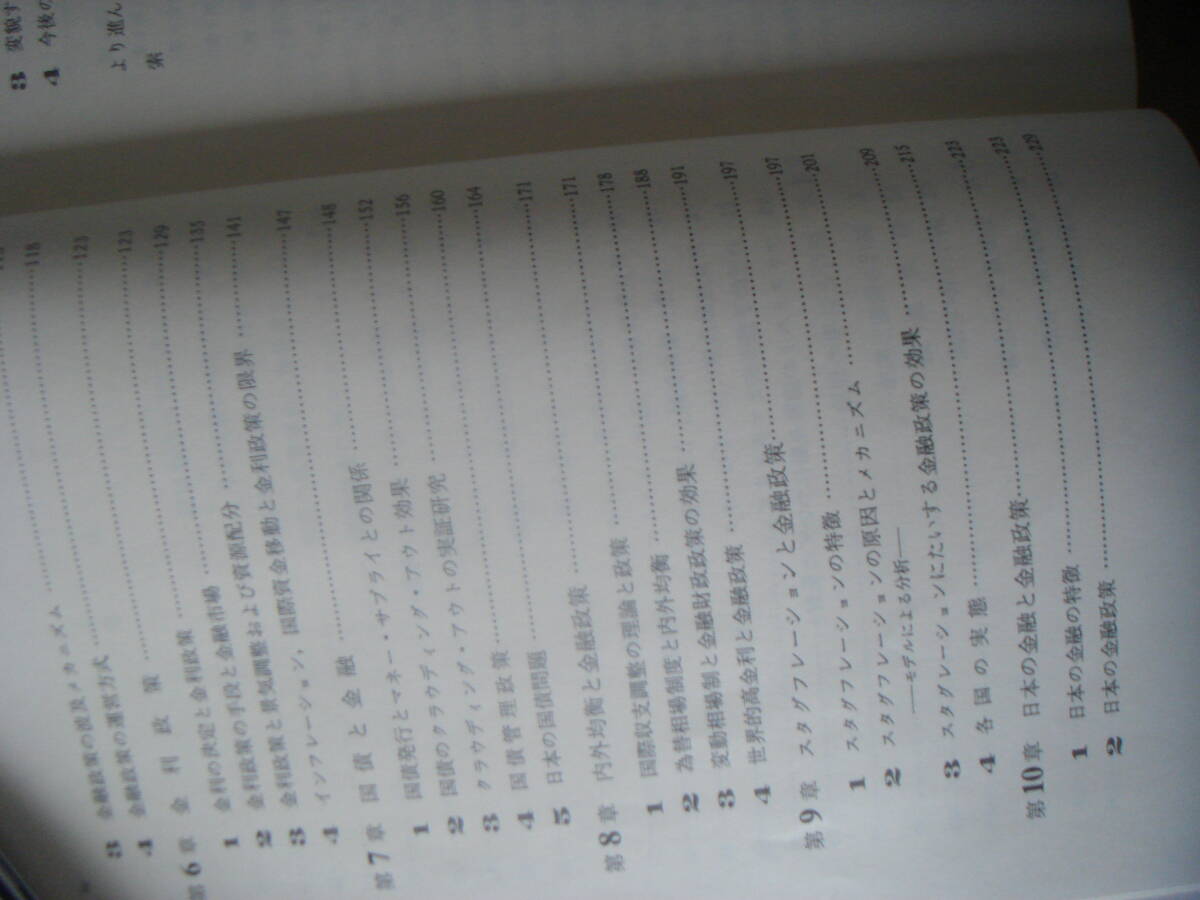 3 変貌す
4 今後の
より進ん
索
3 金融政策の波及メカニズム
4 金融政策の運営方式 ……118
第6章 金利政策 ……123
1 金利の決定と金利政策 ……123
2 金利政策の手段と金融市場 ……129
3 金利政策と景気調整および資源配分 ……135
4 インフレーション，国際資金移動と金利政策の限界 ……141
第7章 国債と金融 ……147
1 国債発行とマネー・サプライとの関係 ……148
2 国債のクラウディング・アウト効果 ……152
3 クラウディング・アウトの実証研究 ……156
4 国債管理政策 ……160
5 日本の国債問題 ……164
第8章 内外均衡と金融政策 ……171
1 国際収支調整の理論と政策 ……171
2 為替相場制度と内外均衡 ……178
3 変動相場制と金融財政政策の効果 ……188
4 世界的高金利と金融政策 ……191
第9章 スタグフレーションと金融政策 ……197
1 スタグフレーションの特徴 ……197
2 スタグフレーションの原因とメカニズム ……201
――モデルによる分析――
3 スタグレーションにたいする金融政策の効果 ……209
4 各国の実態 ……215
第10章 日本の金融と金融政策 ……223
1 日本の金融の特徴 ……223
2 日本の金融政策 ……229